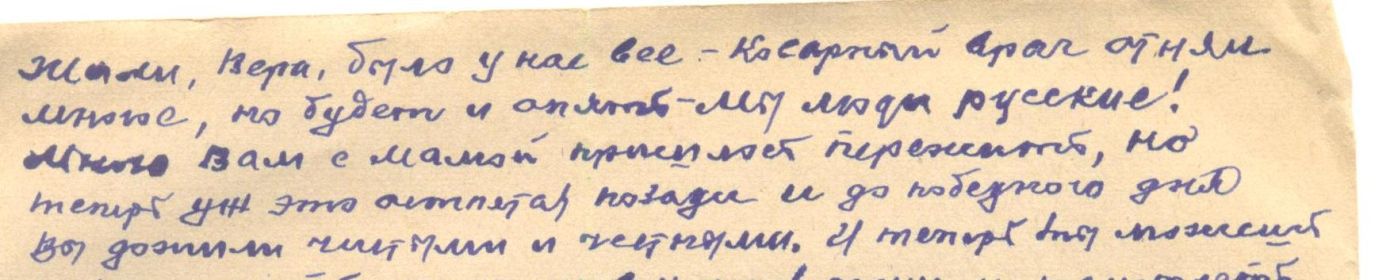 Жили, Вера, было у нас все – Косарный врач отнял
многое, но будет и опять – Мы люди русские!
Много Вам с мамой пришлось пережить, но
теперь уж это осталось позади и до победного дня
Вы дожили чистыми и честными. И теперь Вы можете